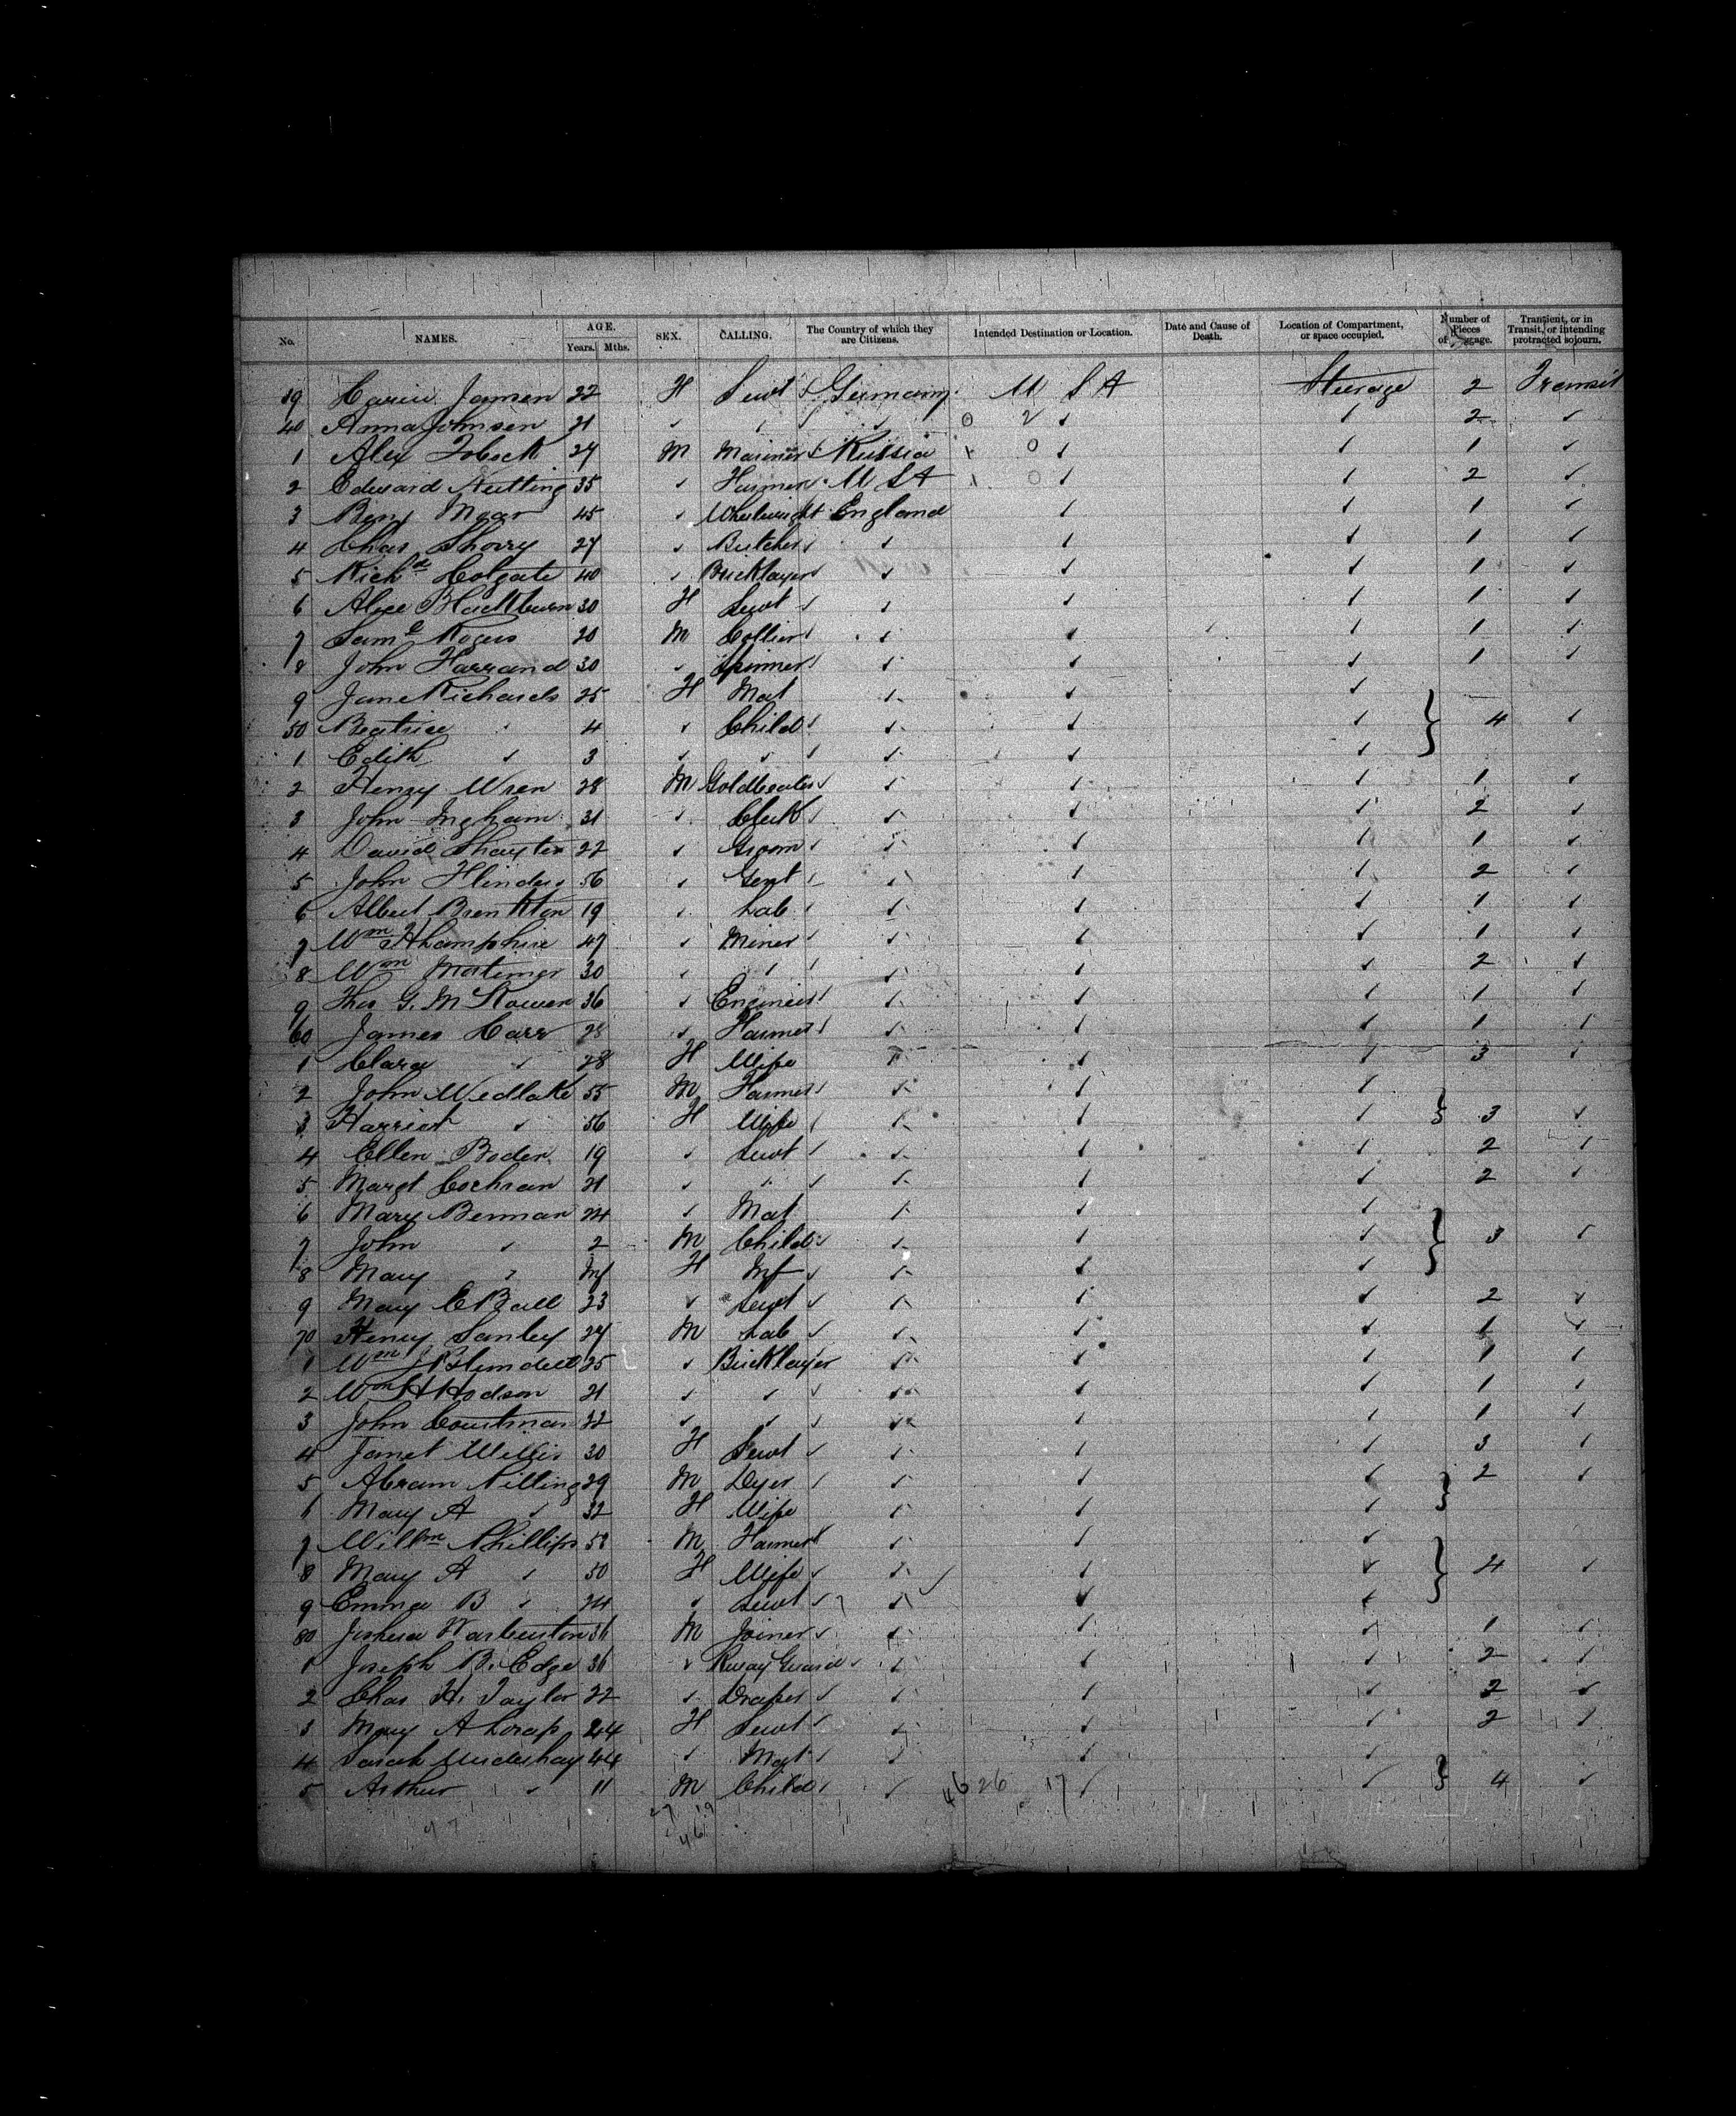 No. NAMES. AGE. Years. Mths. SEX. CALLING. The Country of which they are Citizens. Intended Destination or Location. Date and Cause of Death. Location of Compartment, or space occupied. Number of Pieces of Baggage. Transient, or in Transit, or intending protracted sojourn.
39 Jansen 22 F Servt Germany U S A Steerage 2 Transit
40 Anna Johnsen 21 ✓ ✓ ✓ ✓ ✓ 2 ✓
1 Alex 27 M Mariner Russia ✓ ✓ 1 ✓
2 Edward Nutting 35 ✓ Farmer U S A ✓ ✓ 2 ✓
3 Benj 45 ✓ Wheelwright England ✓ ✓ 1 ✓
4 Chas 27 ✓ Butcher ✓ ✓ ✓ 1 ✓
5 Richd Colgate 40 ✓ Bricklayer ✓ ✓ ✓ 1 ✓
6 Alice Blackburn 30 F Servt ✓ ✓ ✓ 1 ✓
7 Saml Rogers 20 M Collier ✓ ✓ ✓ 1 ✓
8 John Farrand 30 ✓ Spinner ✓ ✓ ✓ 1 ✓
9 Jane Richards 25 F Mat ✓ ✓ ✓
50 Beatrice ✓ 4 ✓ Child ✓ ✓ ✓ 4 ✓
1 Edith ✓ 3 ✓ ✓ ✓ ✓ ✓
2 Henry Wren 28 M Goldbeater ✓ ✓ ✓ 1 ✓
3 John Ingham 31 ✓ Clerk ✓ ✓ ✓ 2 ✓
4 David 22 ✓ Groom ✓ ✓ ✓ 1 ✓
5 John Flinders 56 ✓ Gent ✓ ✓ ✓ 2 ✓
6 Albert 19 ✓ Lab ✓ ✓ ✓ 1 ✓
7 Wm 47 ✓ Miner ✓ ✓ ✓ 1 ✓
8 Wm Mortimer 30 ✓ ✓ ✓ ✓ ✓ 2 ✓
9 Thos G. M 36 ✓ Engineer ✓ ✓ ✓ 1 ✓
60 James Carr 28 ✓ Farmer ✓ ✓ ✓ 1 ✓
1 Clara ✓ 28 F Wife ✓ ✓ ✓ 3 ✓
2 John Wedlake 55 M Farmer ✓ ✓ ✓
3 Harriet ✓ 56 F Wife ✓ ✓ ✓ 3 ✓
4 Ellen Boden 19 ✓ Servt ✓ ✓ ✓ 2 ✓
5 Margt Cochran 21 ✓ ✓ ✓ ✓ ✓ 2 ✓
6 Mary Benman 24 ✓ Mat ✓ ✓ ✓
7 John ✓ 2 M Child ✓ ✓ ✓ 3 ✓
8 Mary ✓ Inf F Inf ✓ ✓ ✓
9 Mary E Ball 23 ✓ Servt ✓ ✓ ✓ 2 ✓
70 Henry Sanley 27 M Lab ✓ ✓ ✓ 1 ✓
1 Wm J Blundell 25 ✓ Bricklayer ✓ ✓ ✓ 1 ✓
2 Wm H Hodson 21 ✓ ✓ ✓ ✓ ✓ 1 ✓
3 John Courtman 22 ✓ ✓ ✓ ✓ ✓ 1 ✓
4 Janet Willis 30 F Servt ✓ ✓ ✓ 3 ✓
5 Abram Pilling 29 M Dyer ✓ ✓ ✓ 2 ✓
6 Mary A ✓ 32 F Wife ✓ ✓ ✓
7 Willm Phillips 58 M Farmer ✓ ✓ ✓
8 Mary A ✓ 50 F Wife ✓ ✓ ✓ 4 ✓
9 Emma B ✓ 24 ✓ Servt ✓ ✓ ✓
80 Joshua Warburton 36 M Joiner ✓ ✓ ✓ 1 ✓
1 Joseph B. Edge 36 ✓ Rway Guard ✓ ✓ ✓ 2 ✓
2 Chas H. Taylor 22 ✓ Draper ✓ ✓ ✓ 2 ✓
3 Mary A 24 F Servt ✓ ✓ ✓ 2 ✓
4 Sarah Underhay 44 ✓ Mat ✓ ✓ ✓
5 Arthur ✓ 11 M Child ✓ ✓ ✓ 4 ✓
46 26 17
27 19
46